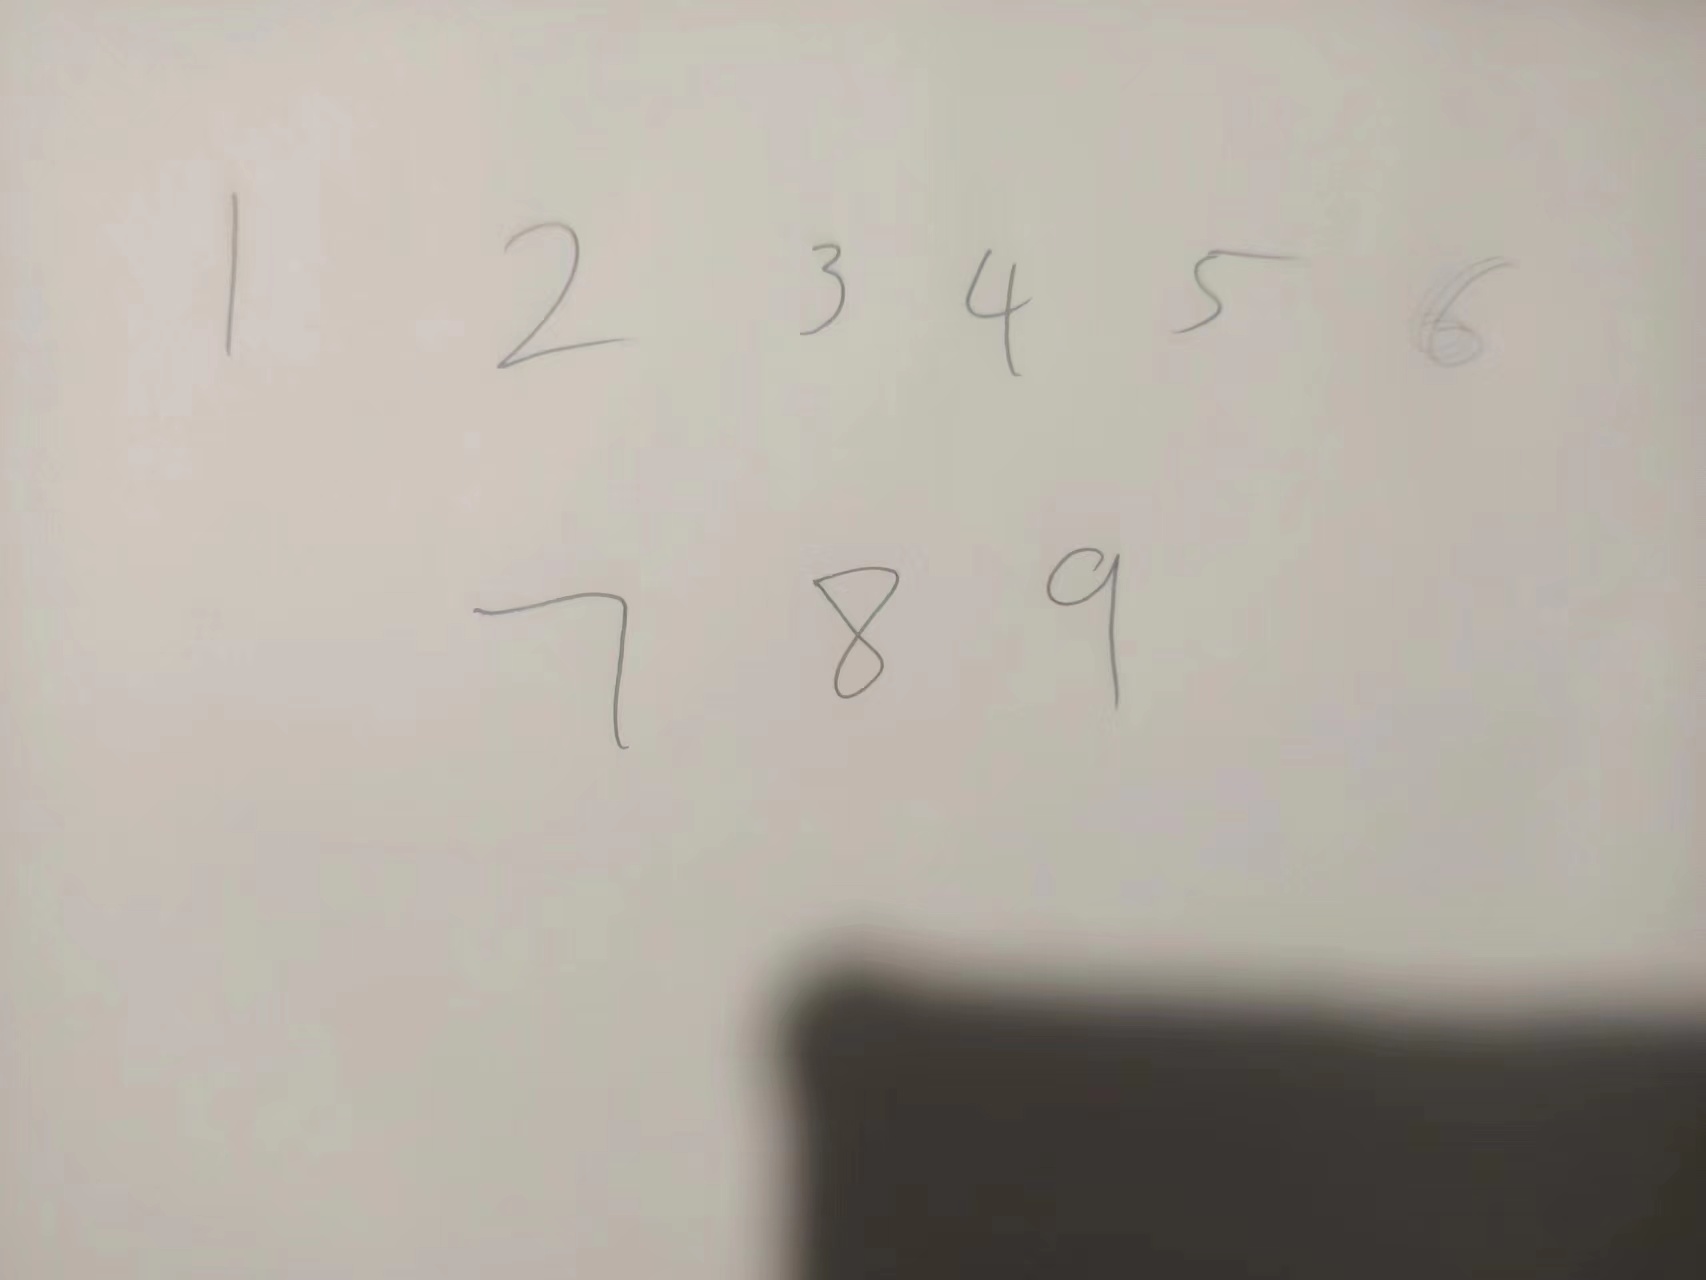 1 2 3 4 5 6
7 8 9